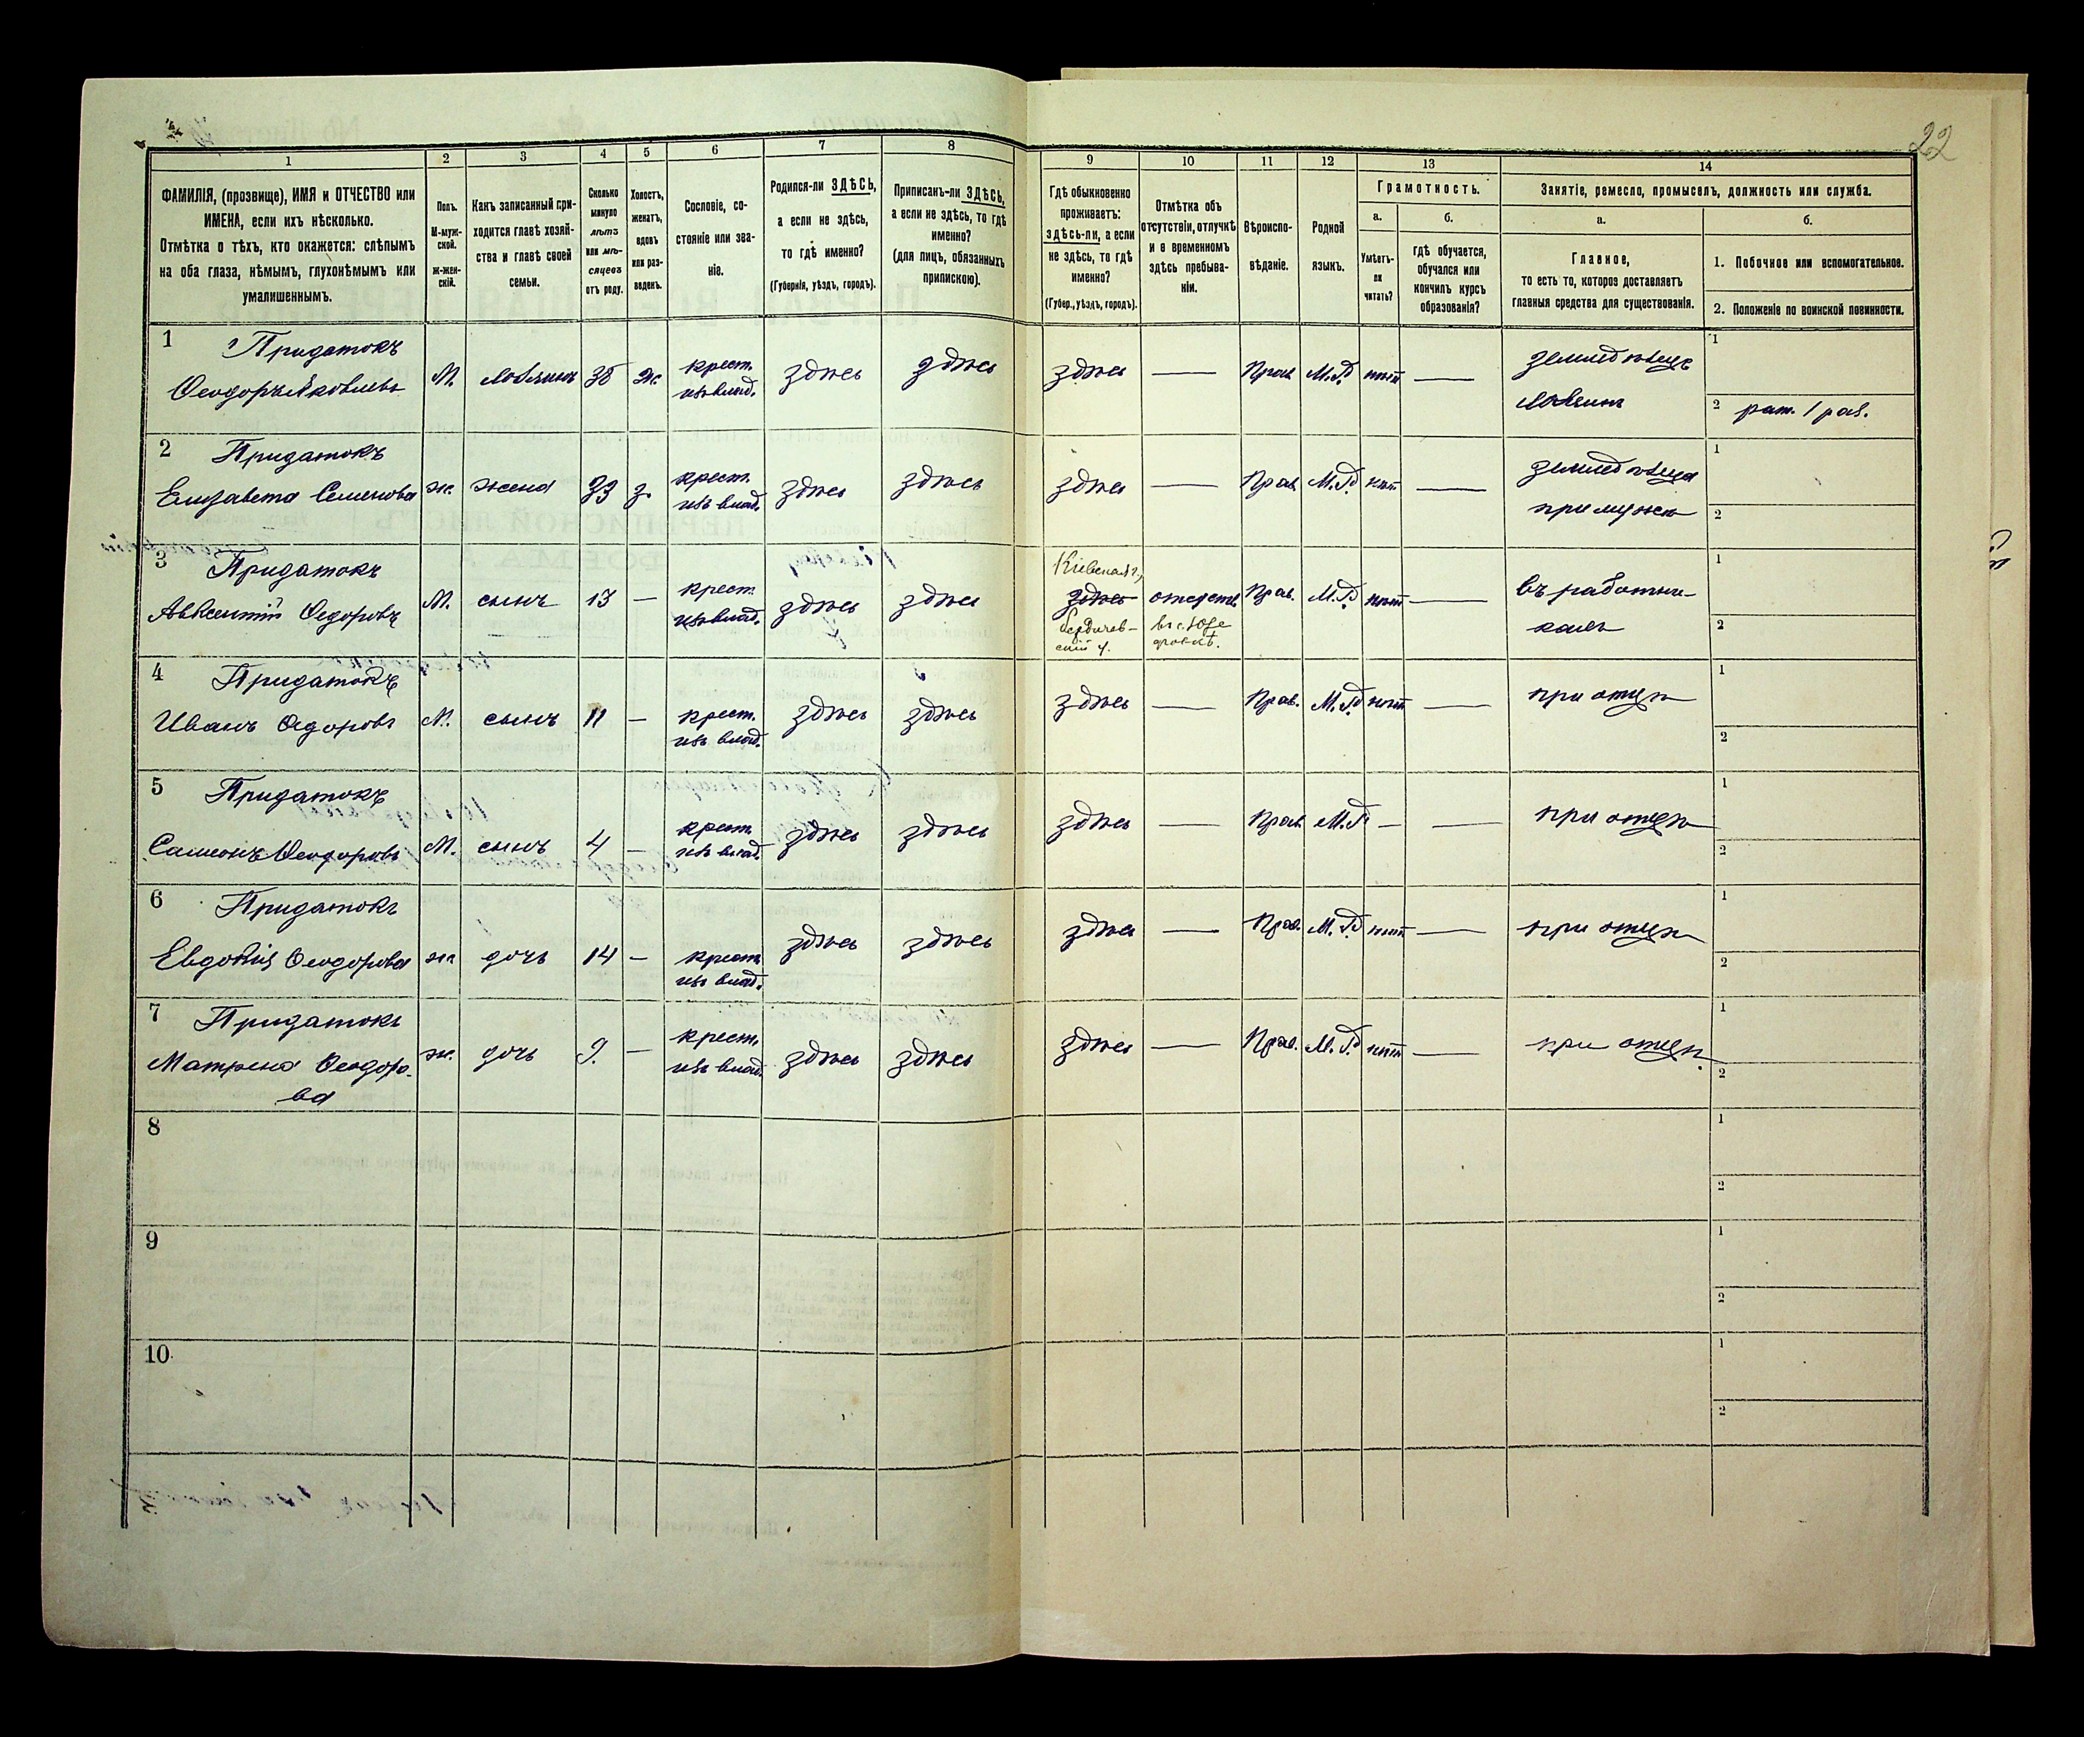 22
1 2 3 4 5 6 7 8 9 10 11 12 13 14
ФАМИЛІЯ, (прозвище), ИМЯ и ОТЧЕСТВО или
ИМЕНА, если ихъ нѣсколько.
Отмѣтка о тѣхъ, кто окажется: слѣпымъ
на оба глаза, нѣмымъ, глухонѣмымъ или
умалишеннымъ.
Полъ.
М-муж-
ской.
ж-жен-
скій.
Какъ записанный при-
ходится главѣ хозяй-
ства и главѣ своей
семьи.
Сколько
минуло
лѣтъ
или мѣ-
сяцевъ
отъ роду.
Холостъ,
женатъ,
вдовъ
или раз-
веденъ.
Сословіе, со-
стояніе или зва-
ніе.
Родился-ли ЗДѢСЬ,
а если не здѣсь,
то гдѣ именно?
(Губернія, уѣздъ, городъ).
Приписанъ-ли ЗДѢСЬ,
а если не здѣсь, то гдѣ
именно?
(для лицъ, обязанныхъ
припискою).
Гдѣ обыкновенно
проживаетъ:
здѣсь-ли, а если
не здѣсь, то гдѣ
именно?
(Губер., уѣздъ, городъ).
Отмѣтка объ
отсутствіи, отлучкѣ
и о временномъ
здѣсь пребыва-
ніи.
Вѣроиспо-
вѣданіе.
Родной
языкъ.
Грамотность.
а. б.
Умѣетъ-
ли
читать?
гдѣ обучается,
обучался или
кончилъ курсъ
образованія?
Занятіе, ремесло, промыселъ, должность или служба.
а. б.
Главное,
то есть то, которое доставляетъ
главныя средства для существованія.
1. Побочное или вспомогательное.
2. Положеніе по воинской повинности.
1 Придатокъ
Ѳеодоръ Яковлевъ М. хозяинъ 38 ж. крест. изъ влад. здѣсь здѣсь здѣсь — Прав. М.Р. нѣтъ — земледѣлецъ
хозяинъ
1
2 рат. 1 раз.
2 Придатокъ
Елизавета Семенова ж. жена 33 з. крест. изъ влад. здѣсь здѣсь здѣсь — Прав. М.Р. нѣт — земледѣлица
при мужѣ
1
2
3 Придатокъ
Авксентій Ѳедоровъ М. сынъ 13 — крест. изъ влад. здѣсь здѣсь
Кіевская г.,
здѣсь
Бердичев-
скій у.
отсутств.
Прав. М.Р. нѣтъ — въ работни-
кахъ
1
2
4 Придатокъ
Иванъ Ѳедоровъ М. сынъ 11 — крест. изъ влад. здѣсь здѣсь здѣсь — Прав. М.Р. нѣтъ — при отцѣ
1
2
5 Придатокъ
Самсонъ Ѳеодоровъ М. сынъ 4 — крест. изъ влад. здѣсь здѣсь здѣсь — Прав. М.Р. — — при отцѣ
1
2
6 Придатокъ
Евдокія Ѳеодорова ж. дочь 14 — крест. изъ влад. здѣсь здѣсь здѣсь — Прав. М.Р. нѣтъ — при отцѣ
1
2
7 Придатокъ
Матрена Ѳеодоро-
ва ж. дочь 9. — крест. изъ влад. здѣсь здѣсь здѣсь — Прав. М.Р. нѣтъ — при отцѣ
1
2
8
1
2
9
1
2
10
1
2